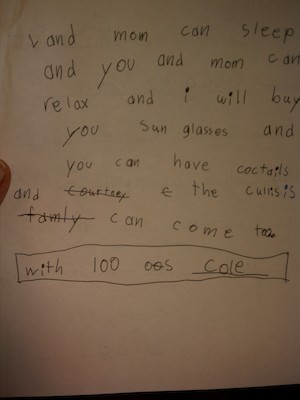 and mom can sleep
and you and mom can
relax and i will buy
you sun glasses and
you can have coctails
and Courtney the
family can come too
with 100 oos Cole